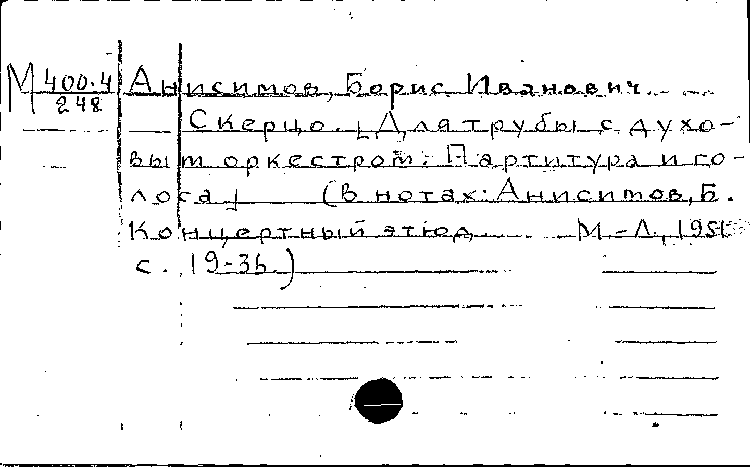 М 400.4 Анисимов, Борис Иванович.
248
Скерцо. [Для трубы с духо-
вым оркестром: Партитура и го-
лоса] (В нотах: Анисимов, Б.
Концертный этюд М-Л., 1951
с. 19-36.)